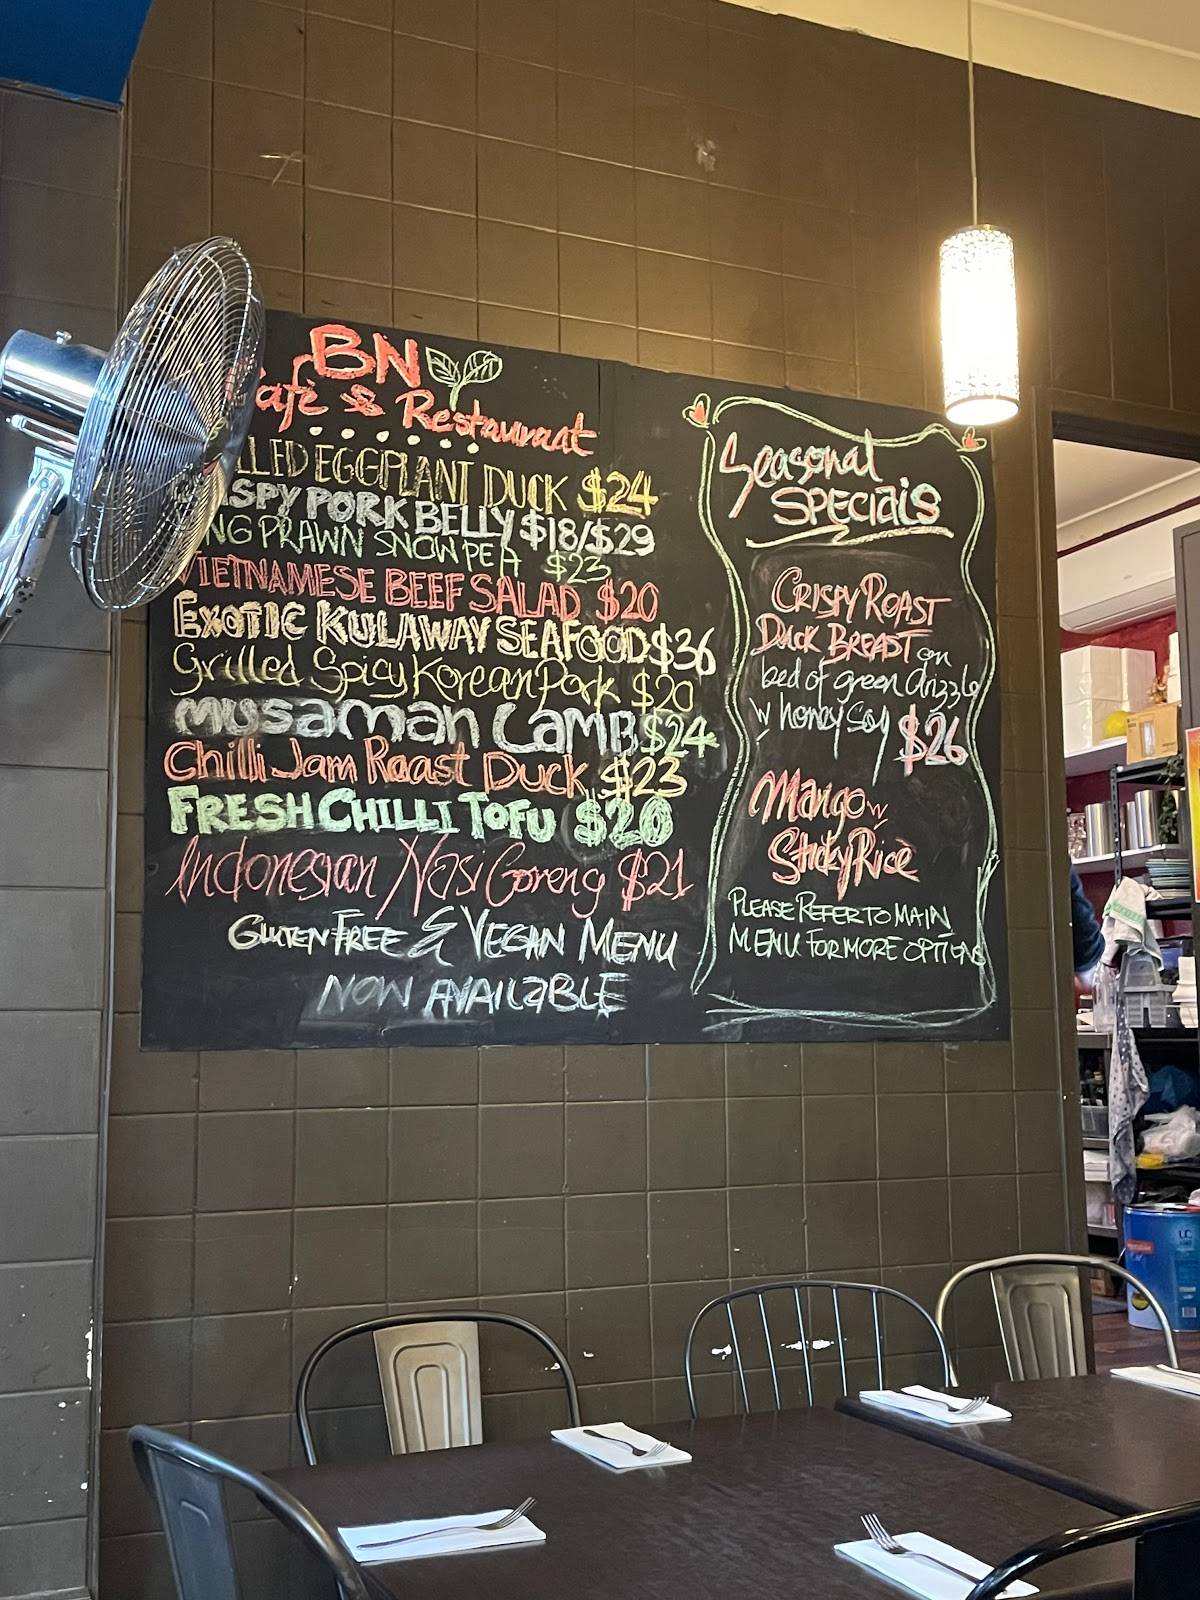 BN
Cafè & Restauraat
EGGPLANT DUCK $24
PORK BELLY $18/$29
PRAWN SNOW PEA $23
VIETNAMESE BEEF SALAD $20
EXOTIC KULAWAY SEAFOOD $36
Grilled Spicy Korean Pork $20
MUSAMAN LAMB $24
Chilli Jam Roast Duck $23
FRESH CHILLI TOFU $20
Indonesian Nasi Goreng $21
GLUTEN FREE & VEGAN MENU
NOW AVAILABLE
Seasonal
SPECIALS
CRISPY ROAST
DUCK BREAST on
bed of green drizzle
w honey soy $26
Mango w
Sticky Rice
PLEASE REFER TO MAIN
MENU FOR MORE OPTIONS